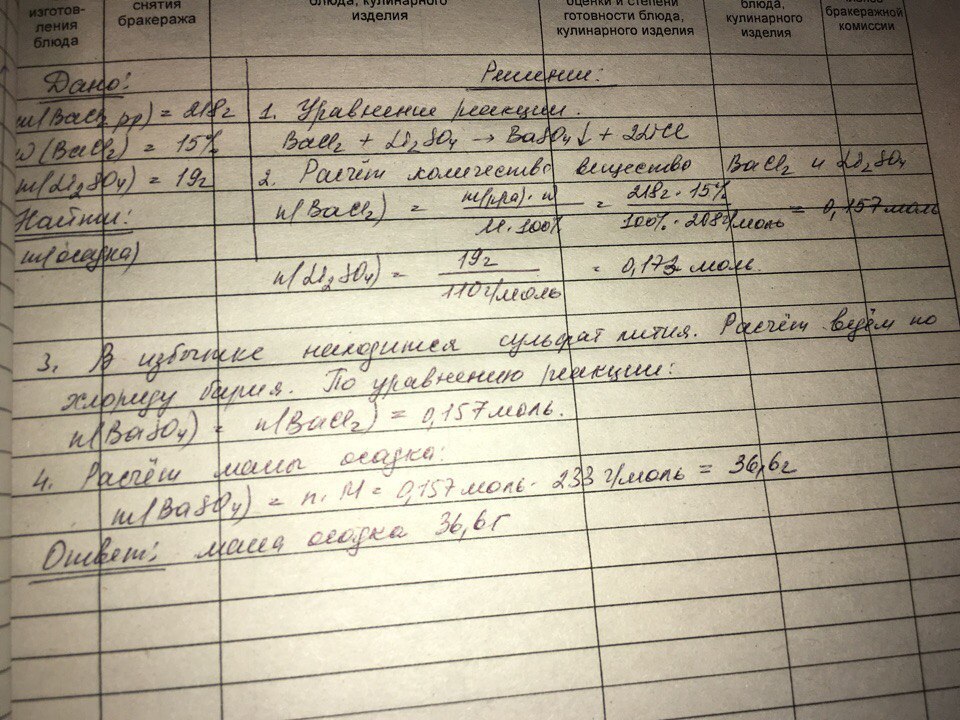 изготов-
ления
блюда
снятия
бракеража
блюда, кулинарного
изделия
оценки и степени
готовности блюда,
кулинарного изделия
блюда,
кулинарного
изделия
бракеражной
комиссии
Дано:
Решение:
m(BaCl2 рр) = 218г
1. Уравнение реакции.
w(BaCl2) = 15%
BaCl2 + Li2SO4 → BaSO4↓ + 2LiCl
m(Li2SO4) = 19г
2. Расчёт количество вещество BaCl2 и Li2SO4
Найти:
n(BaCl2) = m(рра)·w / M·100% = 218г·15% / 100%·208г/моль = 0,157моль
m(осадка)
n(Li2SO4) = 19г / 110г/моль = 0,173 моль
3. В избытке находится сульфат лития. Расчёт ведём по
хлориду бария. По уравнению реакции:
n(BaSO4) = n(BaCl2) = 0,157моль.
4. Расчёт массы осадка:
m(BaSO4) = n·M = 0,157моль·233г/моль = 36,6г
Ответ: масса осадка 36,6г